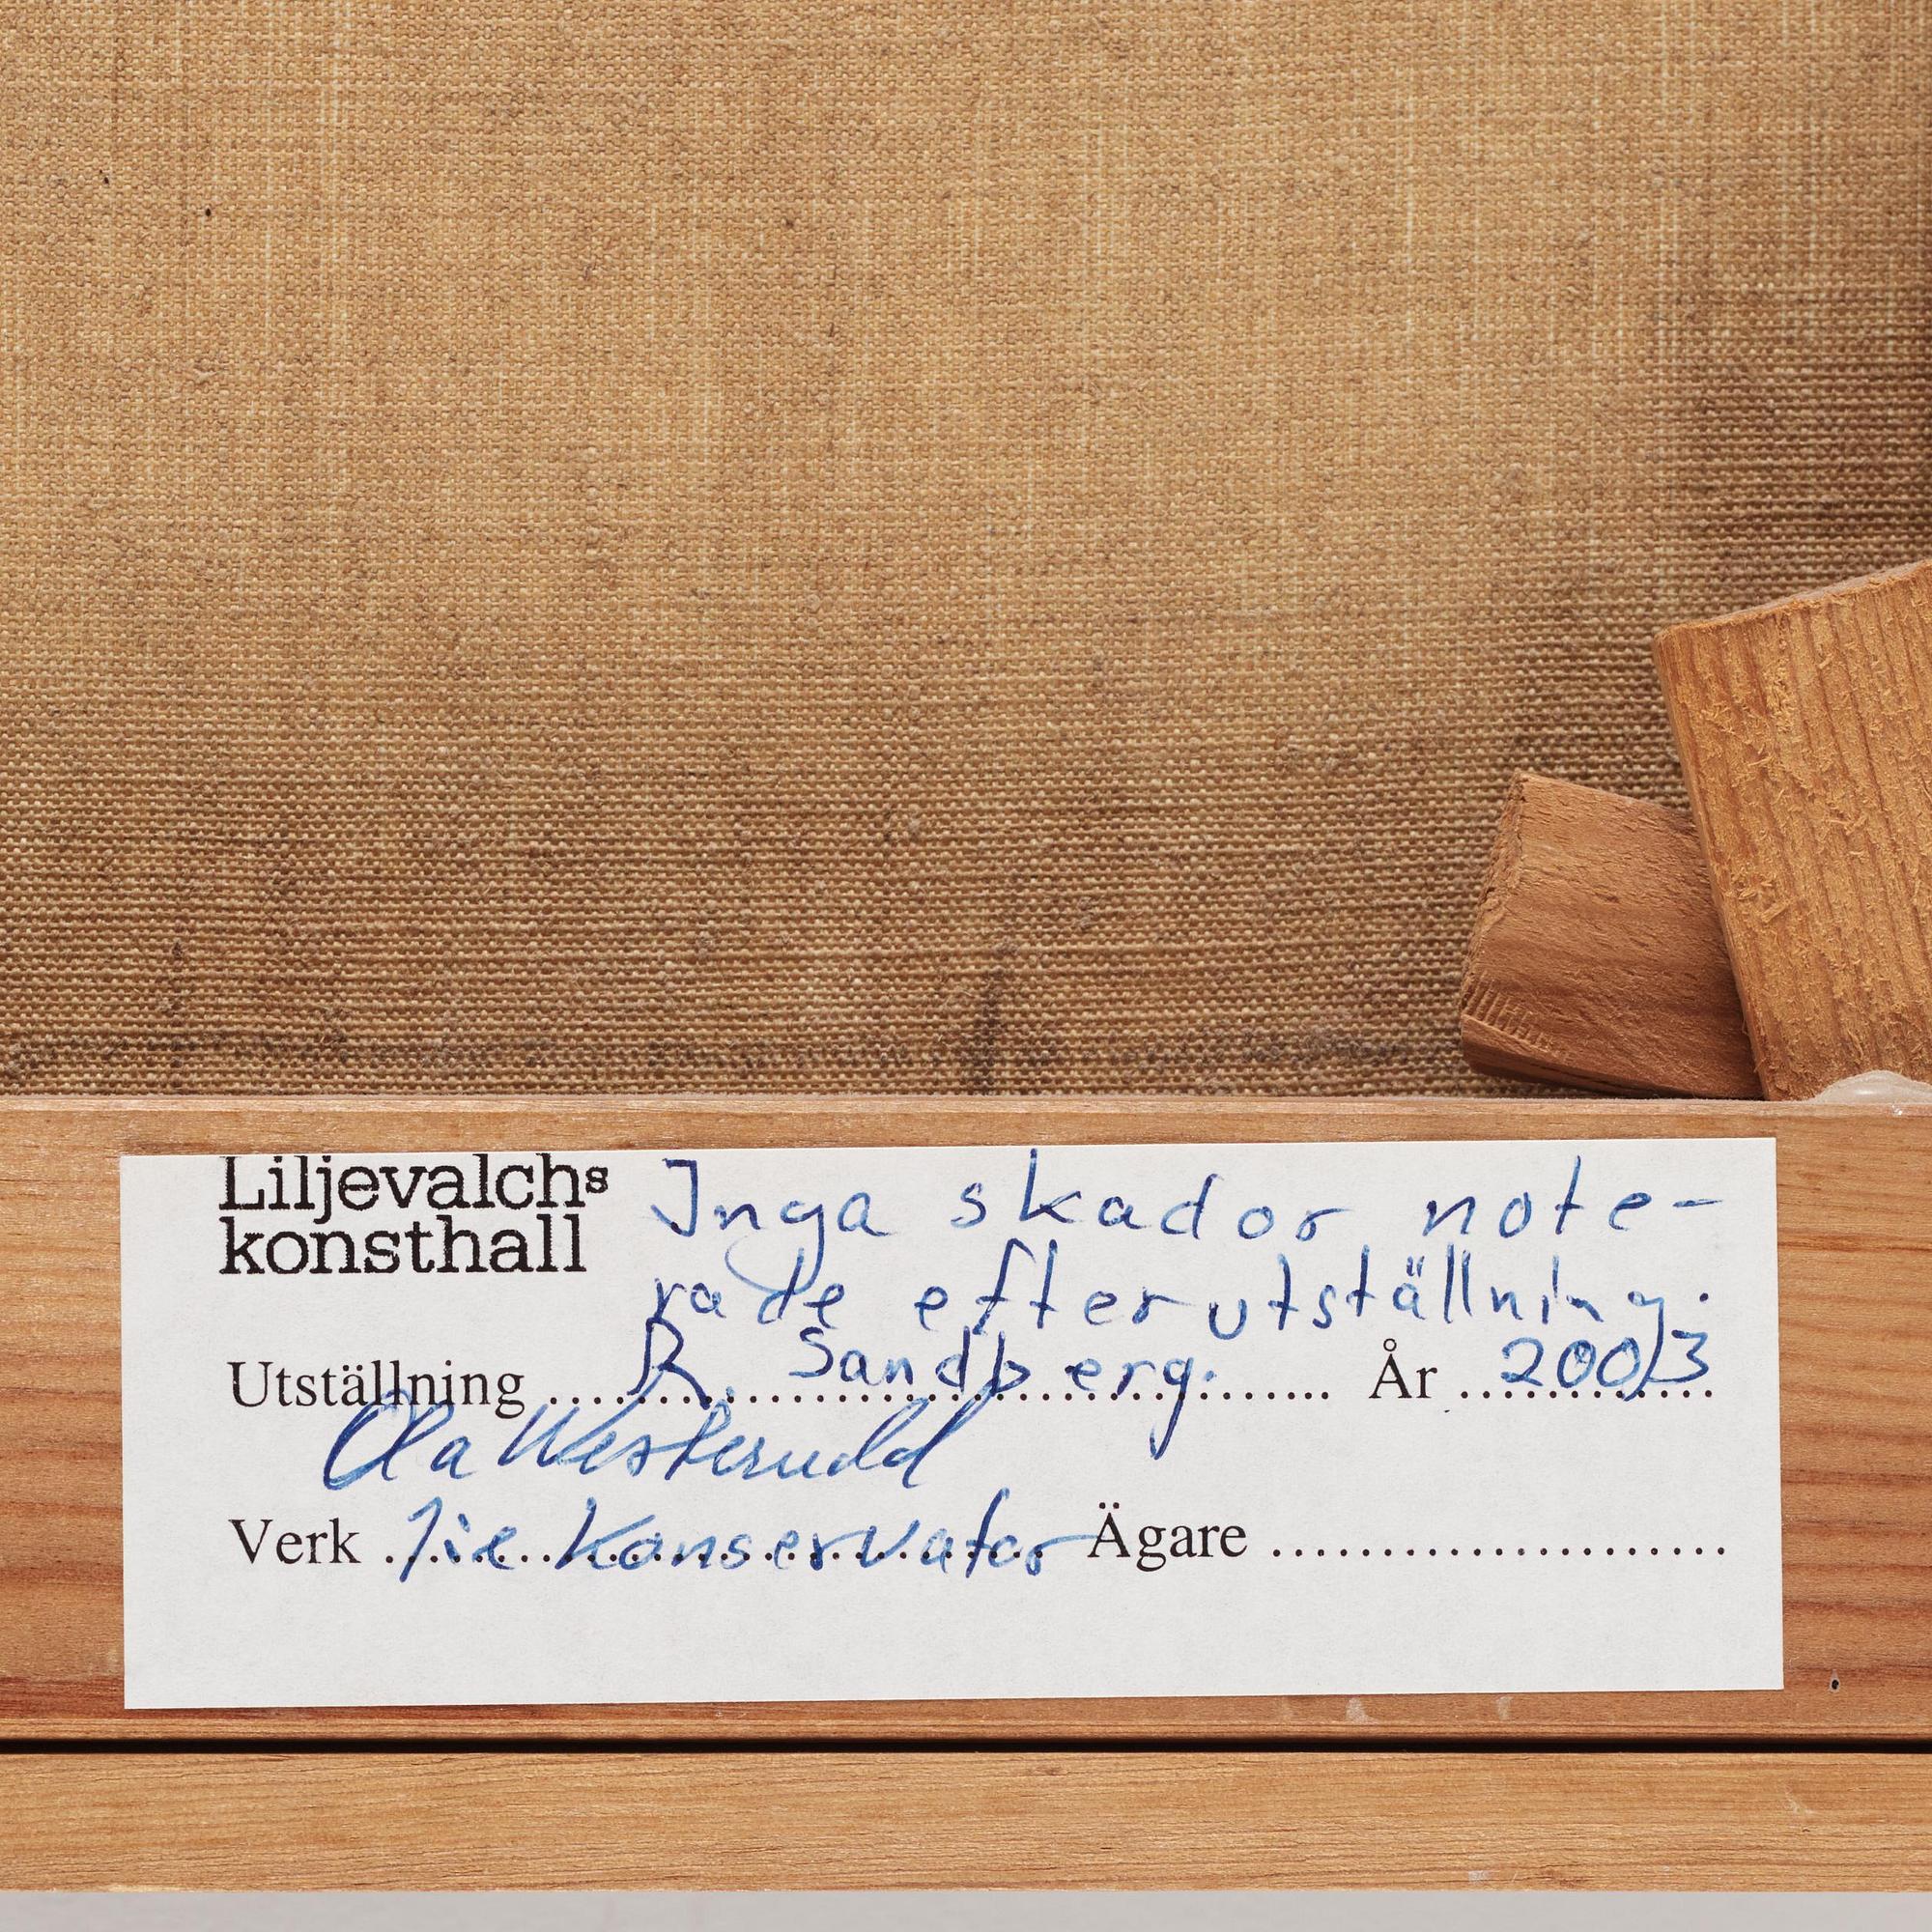 Liljevalchs
konsthall
Inga skador note-
rade efter utställning.
Utställning R. Sandberg. År 2003
Ola Westerudd
Verk 1:e Konservator Ägare